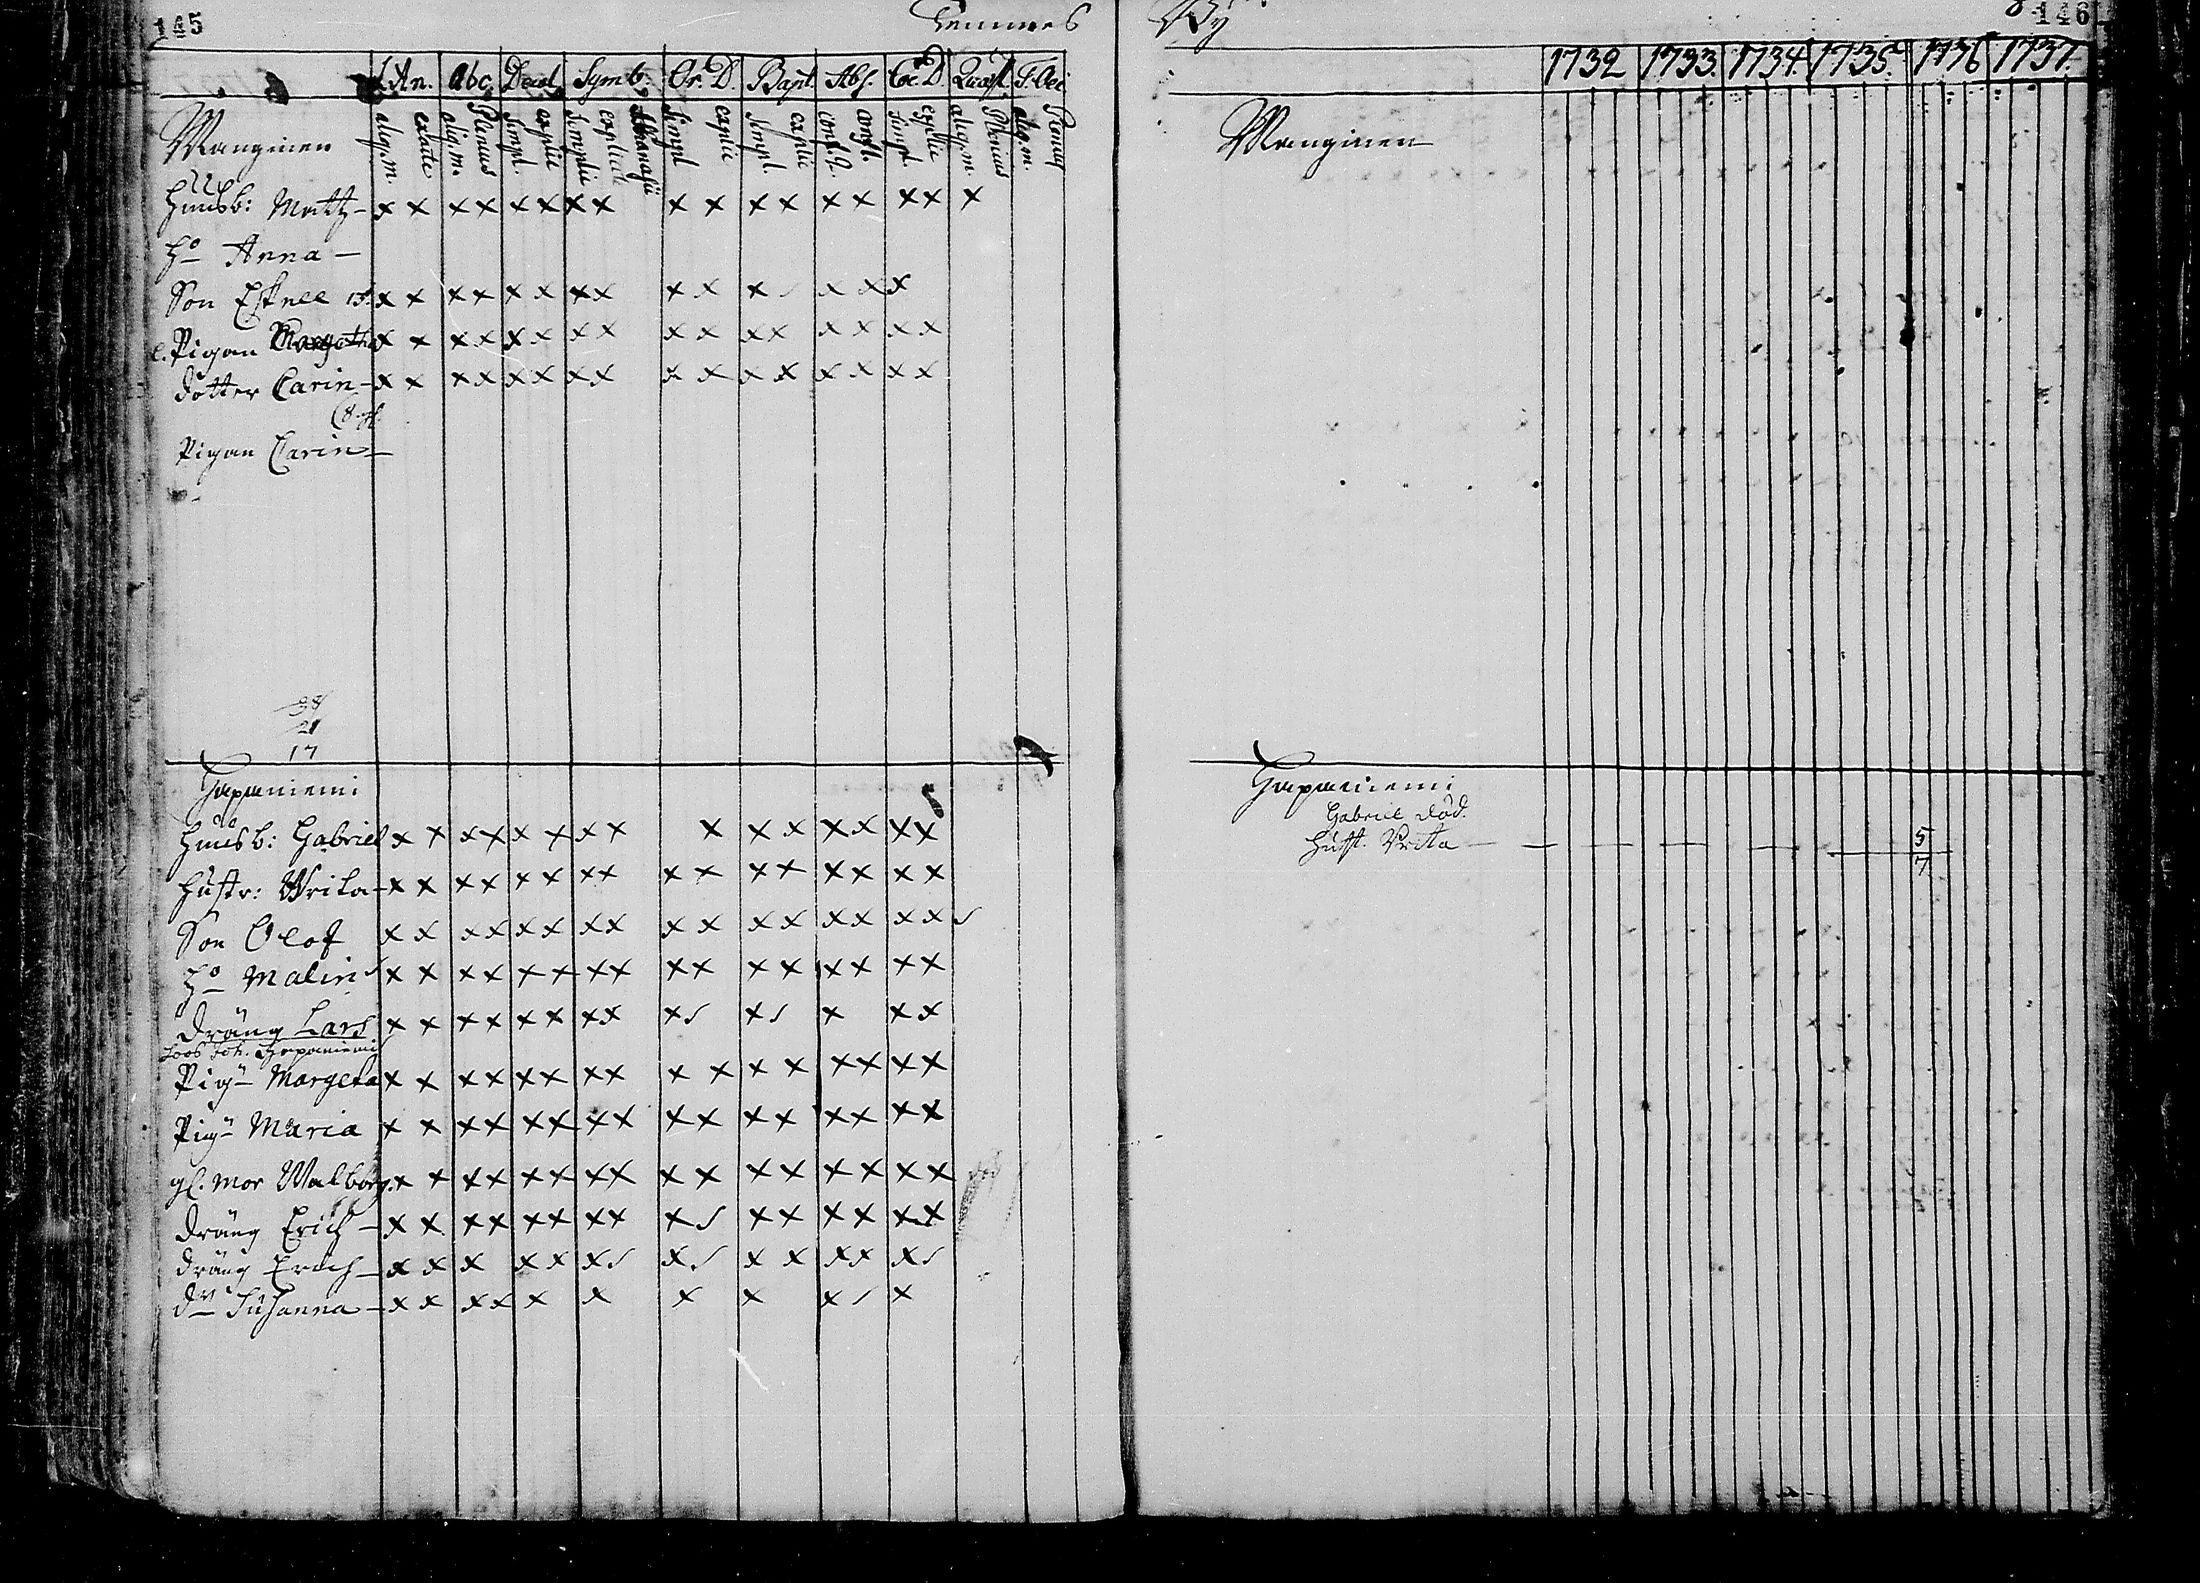 145
Temmes
L. An. Abc. Decal. Symb. Or. D. Bapt. Abs. Coe. D. Quæst. T. Oec.
aliq. m. exacte aliq. m. Plenius Simpl. explic Simplic explicate Athanasii Simpl explic Simpl. explic Simpl. explic aliq. m. Plenius aliq. m. Plenius
Manginen
Huusb: Mattz – x x x x x x x x x x x x x x x x x
Ho Anna –
Son x x x x x x x x x x x x x x
Pigan Margetha x x x x x x x x x x x x x x x x
dotter Carin – x x x x x x x x x x x x x x x x
Pigan Carin –
28
21
17
Hapaniemi
Huusb: Gabriel x x x x x x x x x x x x x x x
Hustr: Writa – x x x x x x x x x x x x x x x x
Son Olof x x x x x x x x x x x x x x x x
Ho Malin x x x x x x x x x x x x x x x x
dräng Lars x x x x x x x x x x x x x
Joh. Hapaniemi
Pig. Margeta x x x x x x x x x x x x x x x x
Pig. Maria x x x x x x x x x x x x x x x x
gl. mor Walborg. x x x x x x x x x x x x x x x x
dräng Erich – x x x x x x x x x x x x x x x
dräng Erich – x x x x x x x x x x x x x
dr Susanna – x x x x x x x x x x
By
146
1732 1733. 1734. 1735. 1736 1737.
Manginen
Hapaniemi
Gabriel död.
Hust. Vrita – – – – – 5
7